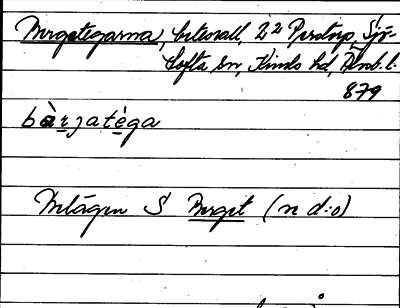 Bergategarna, beteshall, 2² Perstorp, Sjö-
tofta sn, Kinds hd, Älvsb. l.
879
bàrjatèga
Inläge S Berget (n d:o)